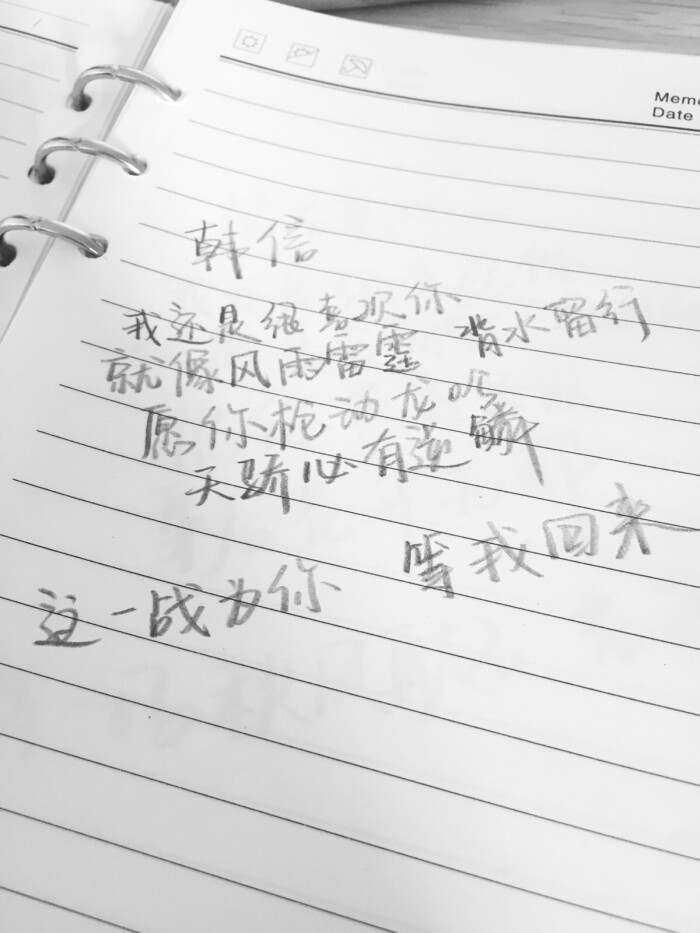 Memo
Date
韩信
我还是很喜欢你 背水留行
就像风雨雷霆
愿你枪动龙吟
天骄必有逆鳞
等我回来
这一战为你